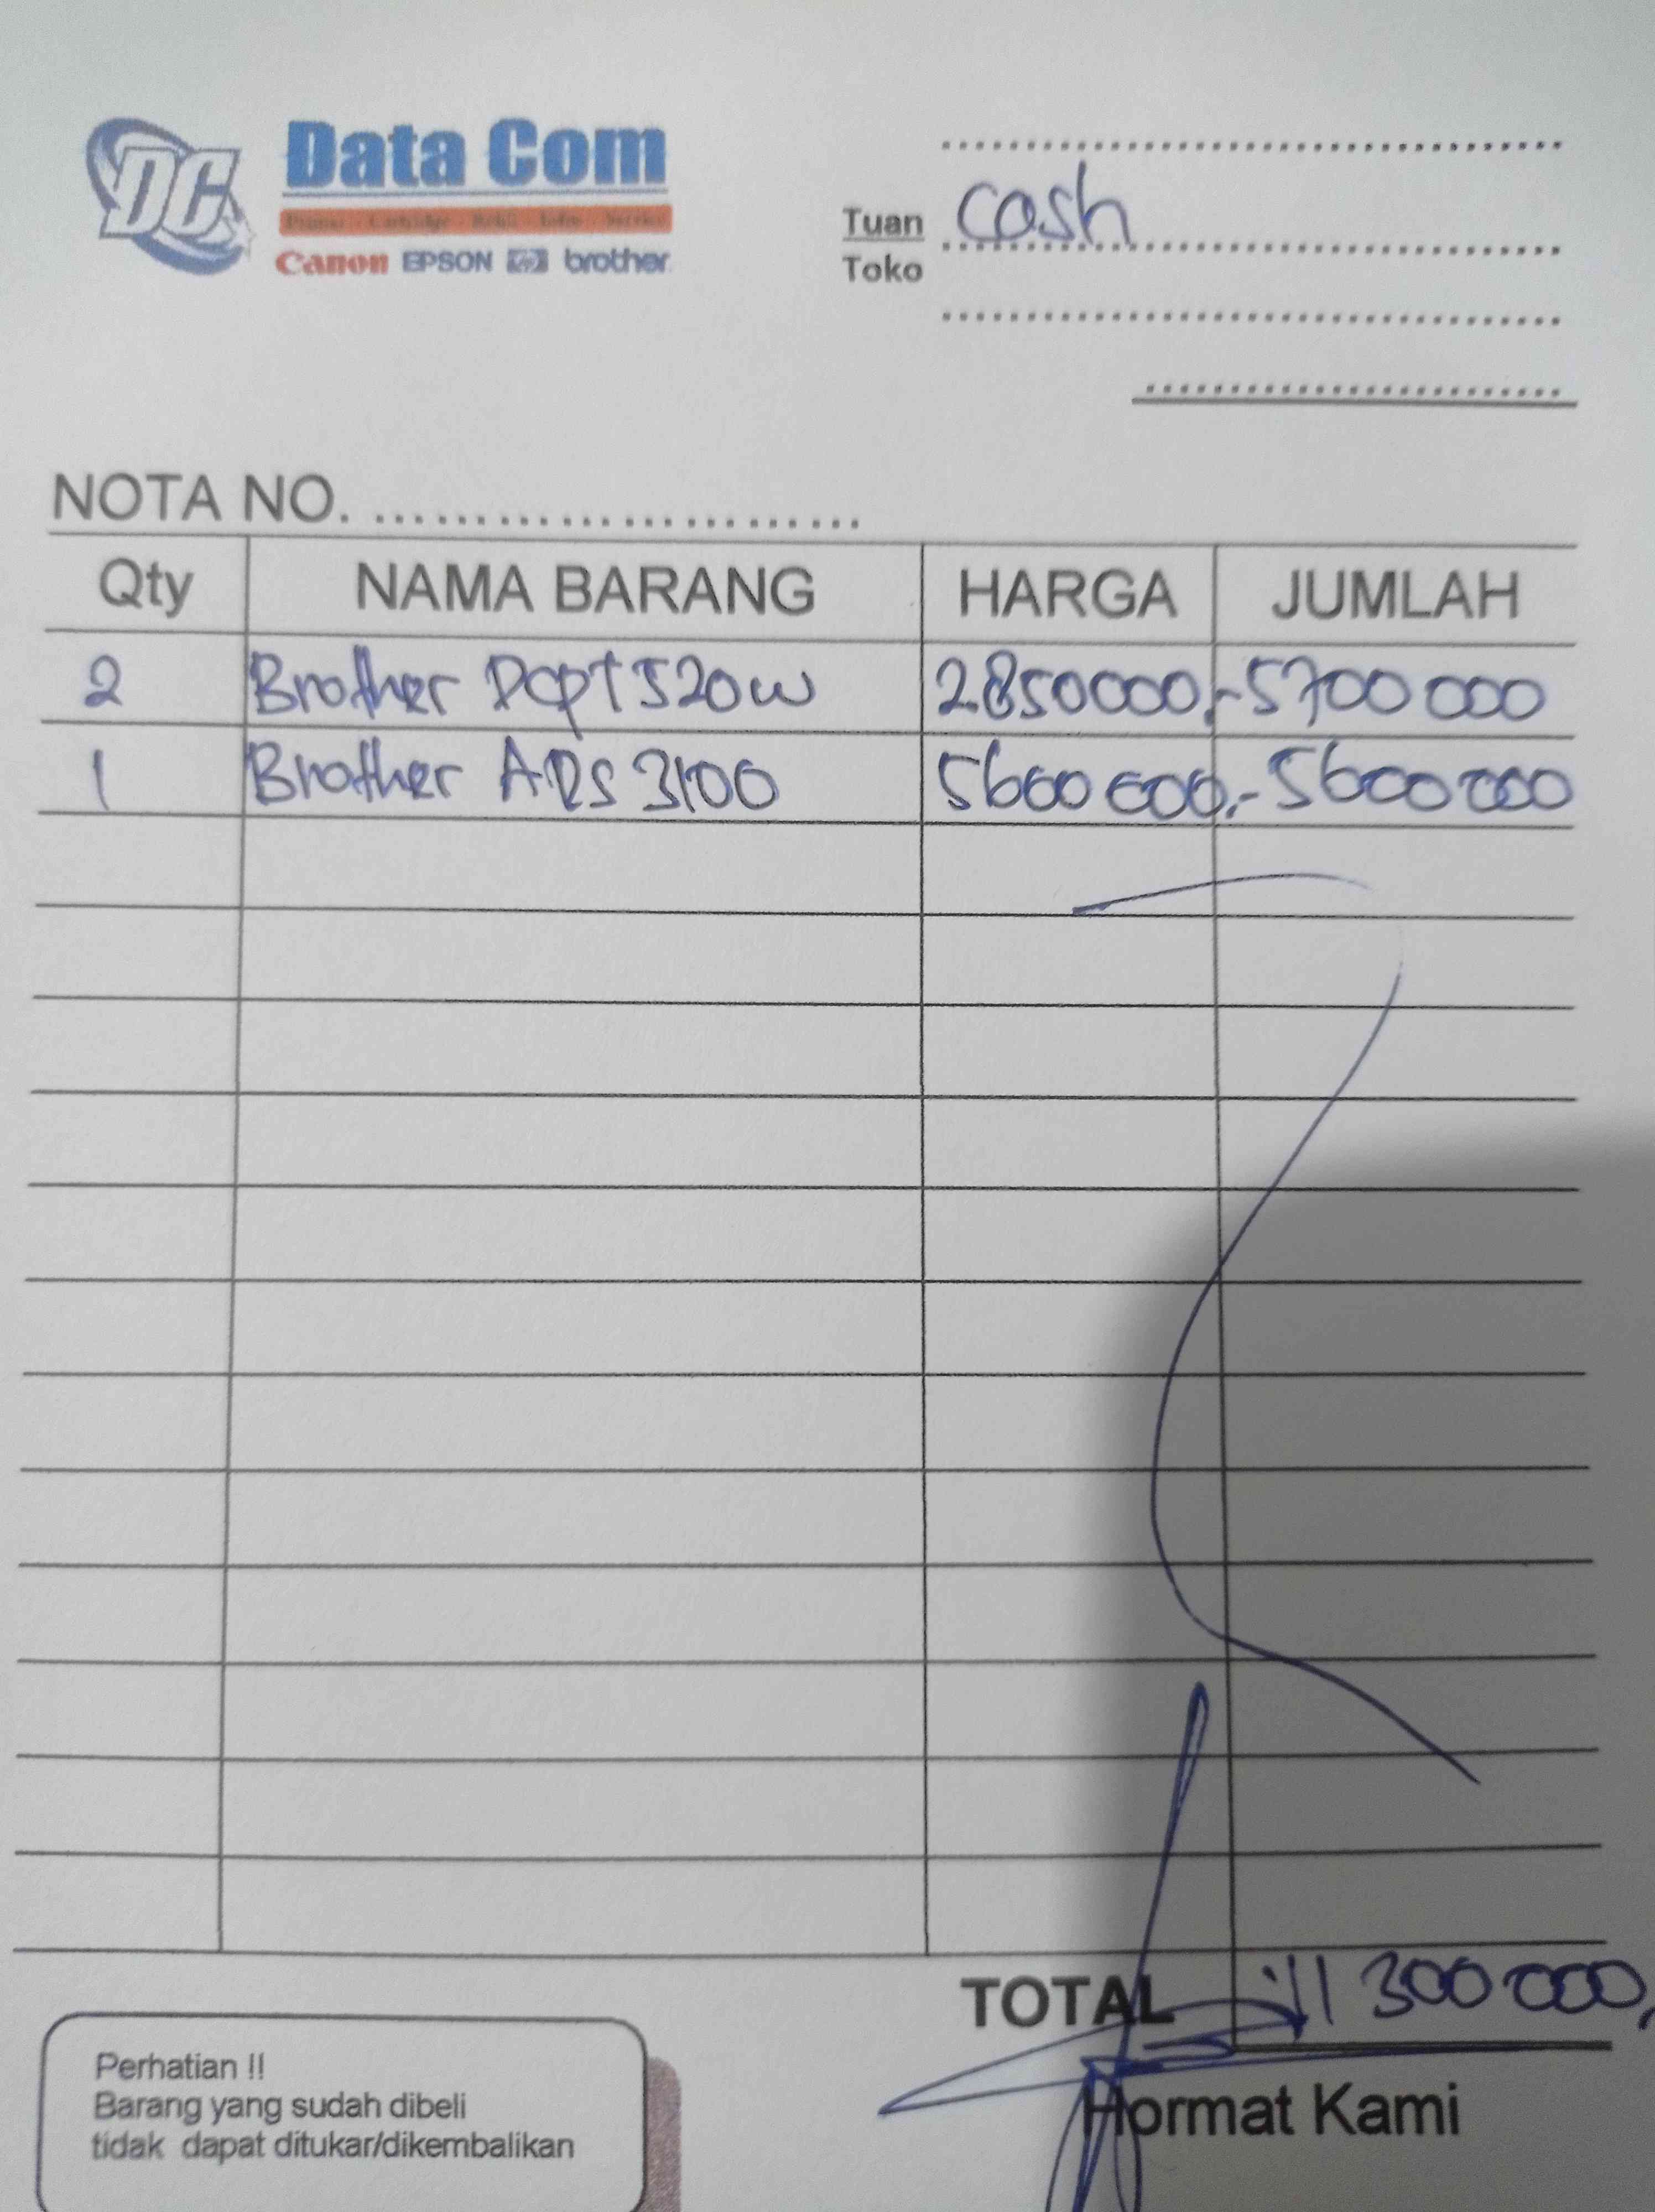 DC Data Com
Printer - Cartridge - Refill - Infus - Service
Canon EPSON hp brother
Tuan cash
Toko
NOTA NO. ........................
Qty NAMA BARANG HARGA JUMLAH
2 Brother DCPT520w 2.850000,- 5700 000
1 Brother ADS 3100 5600 000,- 5600 000
TOTAL 11 300 000,
Perhatian !!
Barang yang sudah dibeli
tidak dapat ditukar/dikembalikan
Hormat Kami